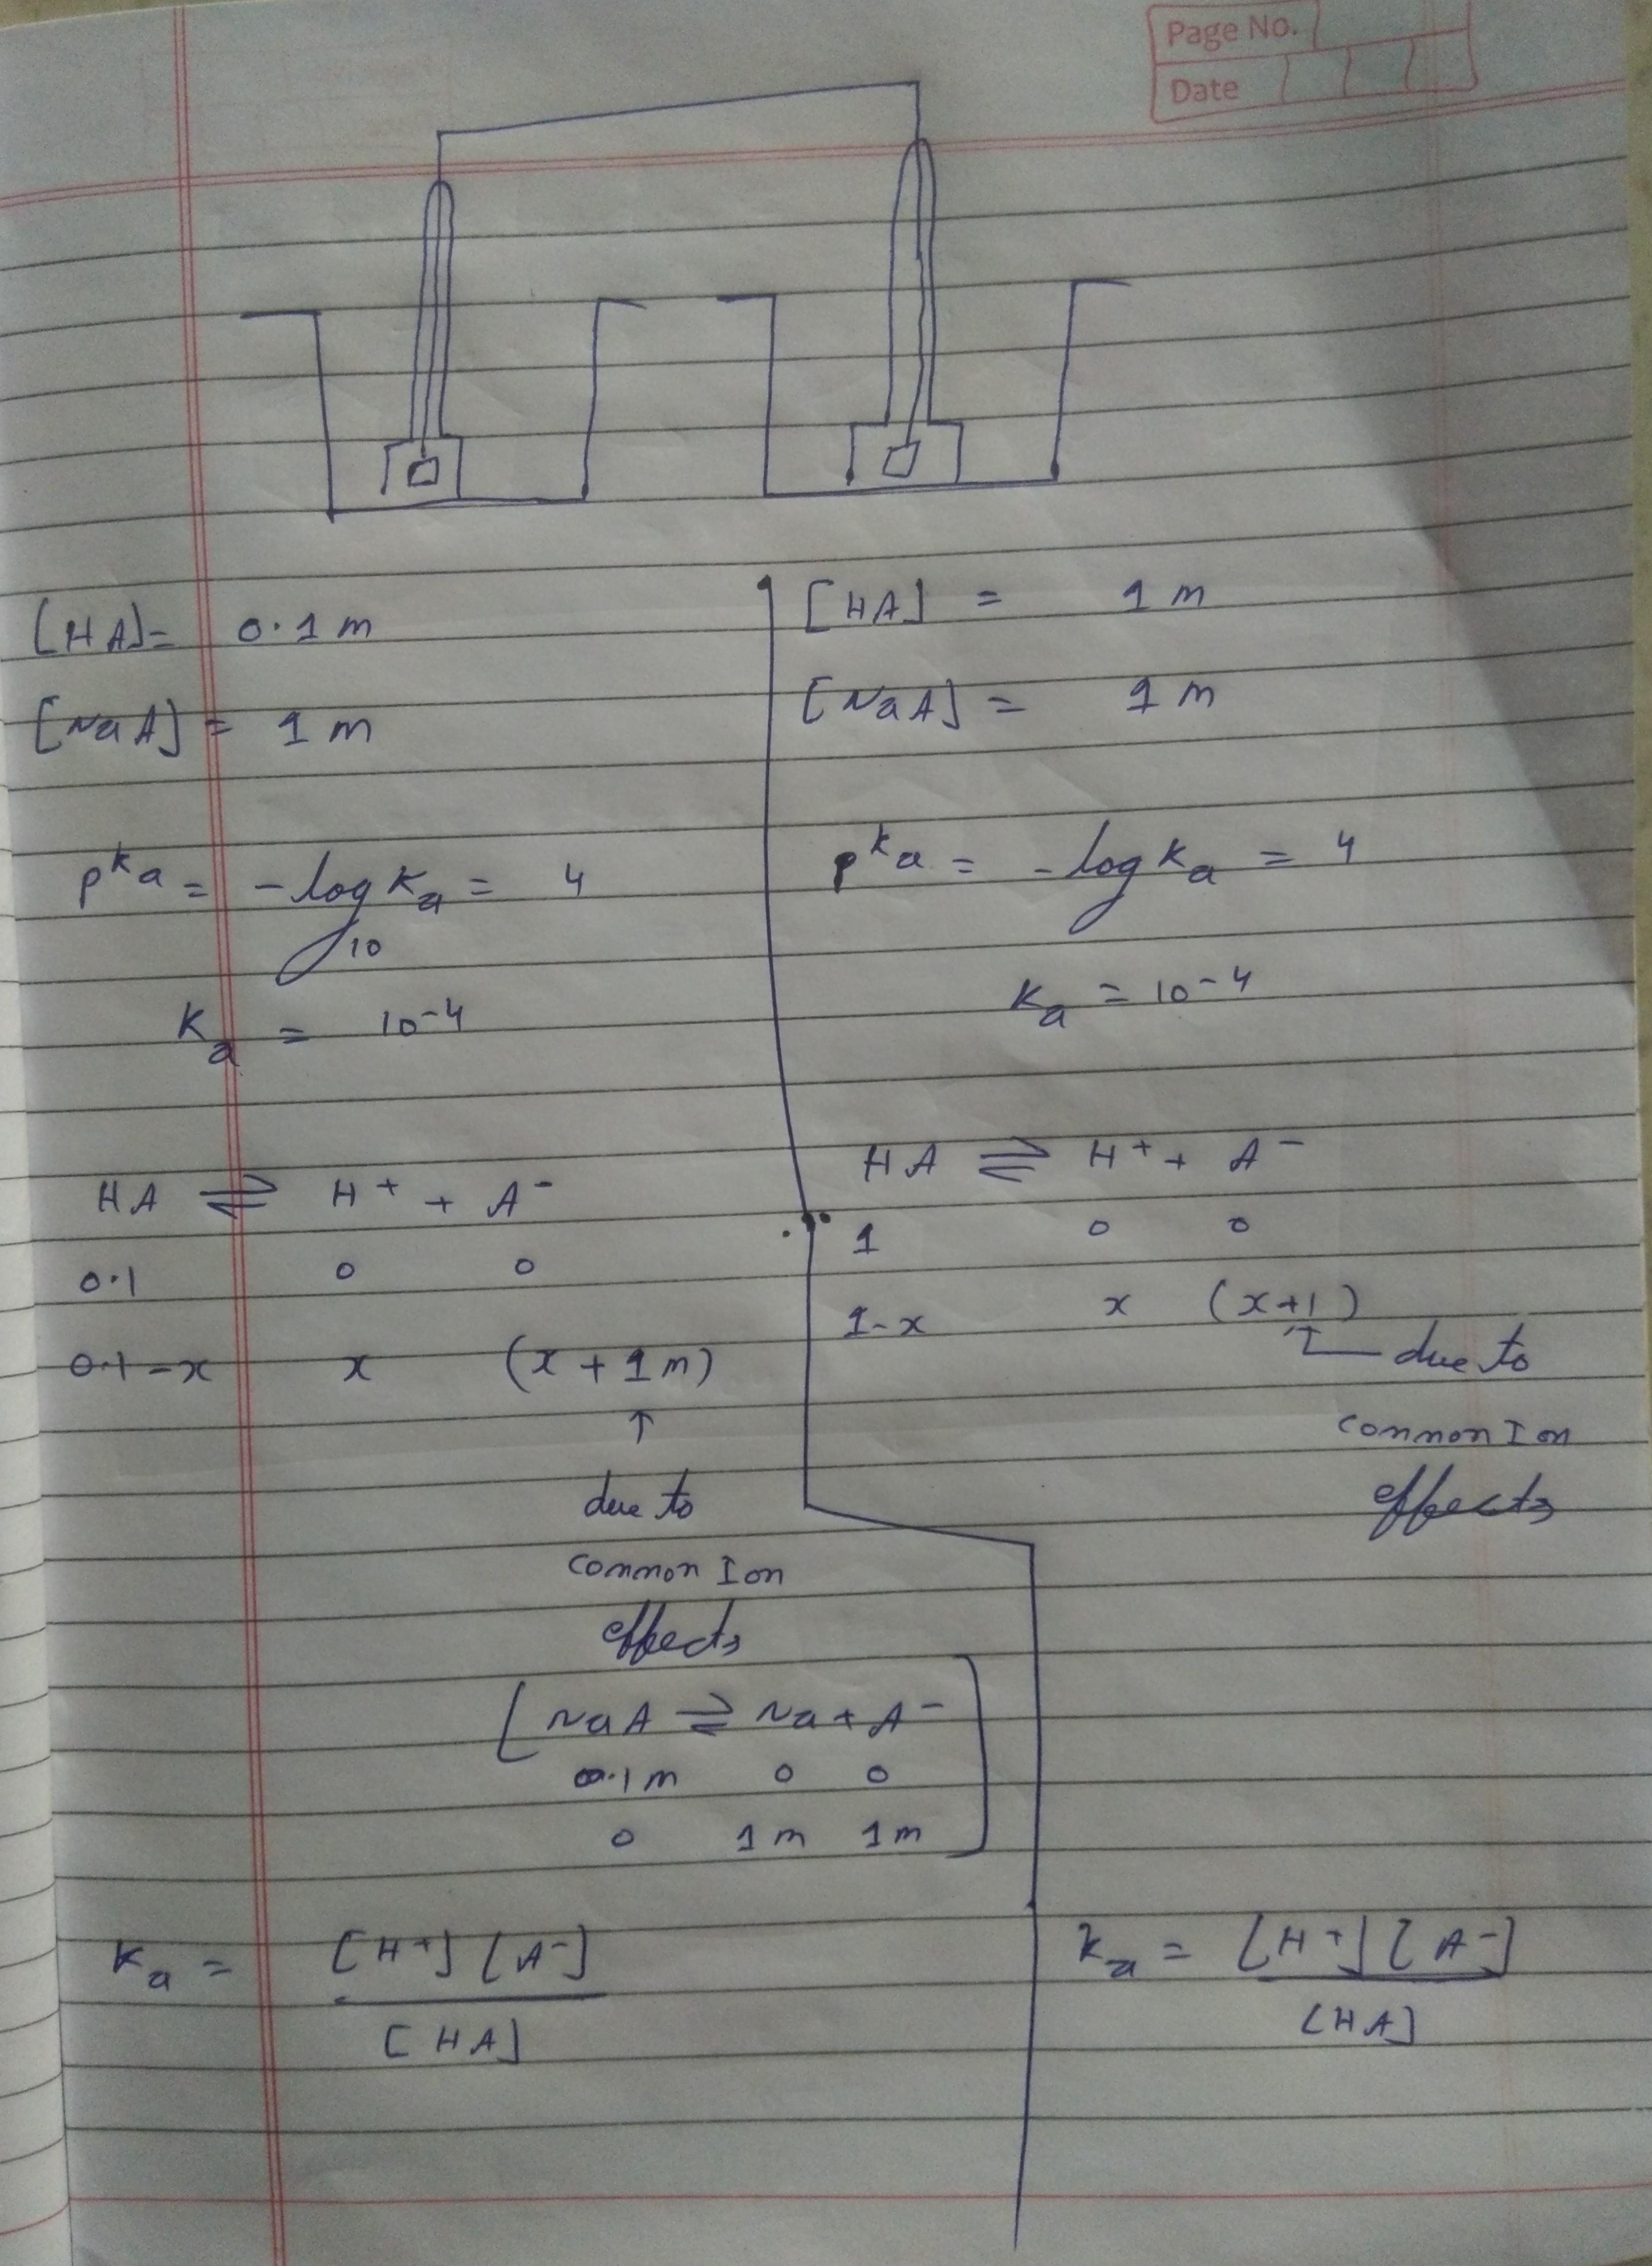 Page No.
Date
[HA]= 0.1m
[NaA] = 1m
pKa = -log10 Ka = 4
Ka = 10-4
HA ⇌ H+ + A-
0.1 0 0
0.1-x x (x + 1m)
↑
due to
common Ion
effects
[NaA ⇌ Na + A-
0.1m 0 0
0 1m 1m]
Ka = [H+] [A-]
[HA]
[HA] = 1m
[NaA] = 1m
pKa = -log Ka = 4
Ka = 10-4
HA ⇌ H+ + A-
1 0 0
1-x x (x+1)
due to
common Ion
effects
Ka = [H+] [A-]
[HA]